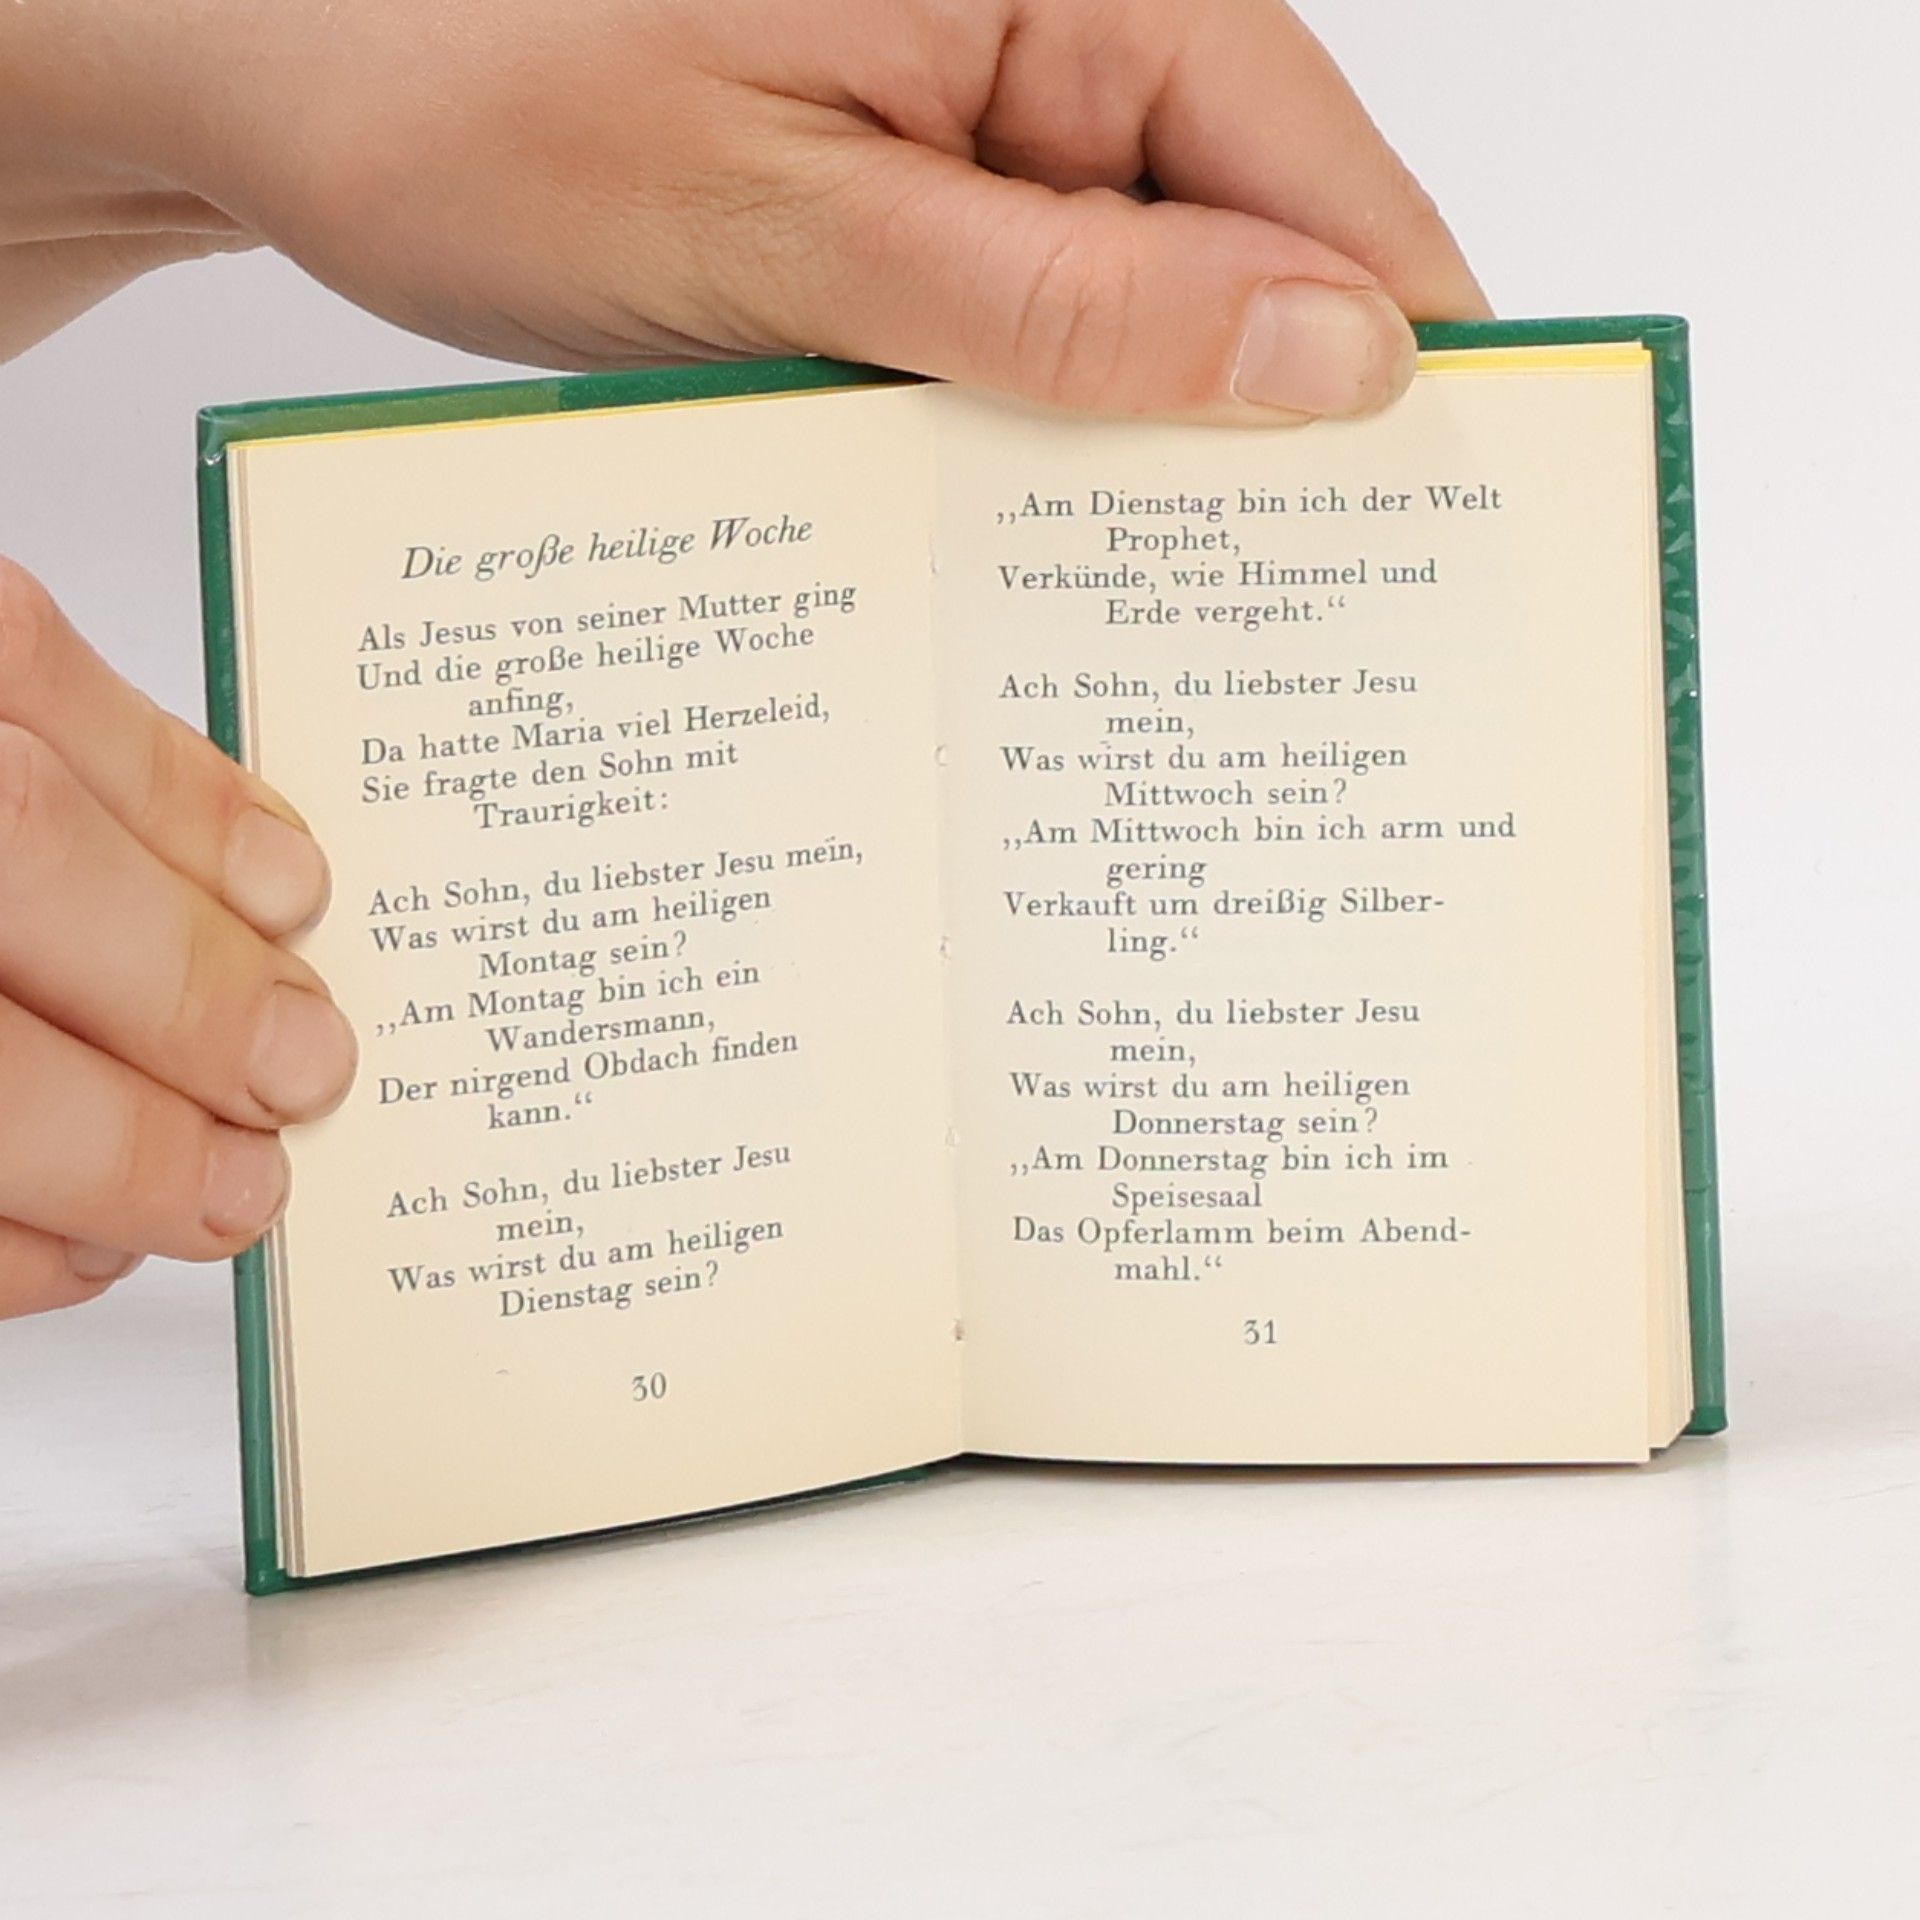 Die große heilige Woche
Als Jesus von seiner Mutter ging
Und die große heilige Woche
anfing,
Da hatte Maria viel Herzeleid,
Sie fragte den Sohn mit
Traurigkeit:
Ach Sohn, du liebster Jesu mein,
Was wirst du am heiligen
Montag sein?
,,Am Montag bin ich ein
Wandersmann,
Der nirgend Obdach finden
kann.“
Ach Sohn, du liebster Jesu
mein,
Was wirst du am heiligen
Dienstag sein?
30
,,Am Dienstag bin ich der Welt
Prophet,
Verkünde, wie Himmel und
Erde vergeht.“
Ach Sohn, du liebster Jesu
mein,
Was wirst du am heiligen
Mittwoch sein?
,,Am Mittwoch bin ich arm und
gering
Verkauft um dreißig Silber-
ling.“
Ach Sohn, du liebster Jesu
mein,
Was wirst du am heiligen
Donnerstag sein?
,,Am Donnerstag bin ich im
Speisesaal
Das Opferlamm beim Abend-
mahl.“
31